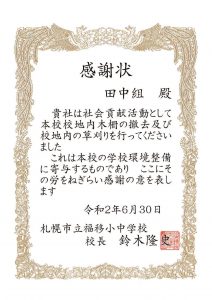 感謝状
田中組 殿
貴社は社会貢献活動として
本校校地内木柵の撤去及び
校地内の草刈りを行ってください
ました
これは本校の学校環境整備
に寄与するものであり ここにそ
の労をねぎらい感謝の意を表し
ます
令和2年6月30日
札幌市立福移小中学校
校長 鈴木隆史